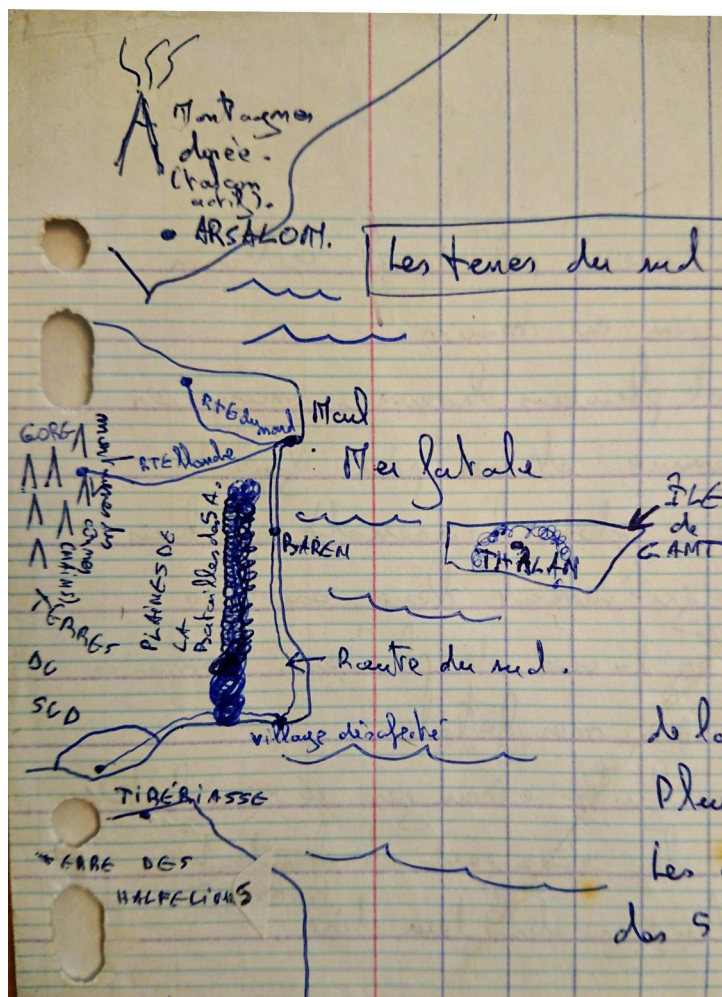 Montagnes
dorée.
(Volcan
actif).
ARSALOM.
Les terres du sud
RTE du nord
Maul
GORE
RTE Blanche
Mer fatale
ÎLE
de
GAMT
THALAN
BAREN
PLAINES DE
LA
Batailles des 5 A.
TERRES
DU
SUD
Route du sud.
village désafecté
de la
TIRÉRIASSE
Plu
TERRE DES
Les
HALFELIONS
des 5